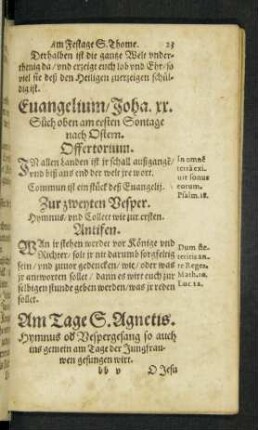 Am Festage S. Thome. 23
Derhalben ist die gantze Welt vnder-
thenig da / vnd erzeigt euch lob vnd Ehr / so
viel sie deß den Heiligen zuerzeigen schül-
dig ist.
Euangelium / Joha. xx.
Süch oben am ersten Sontage
nach Ostern.
Offertorium.
IN allen Landen ist jr schall außgangē /
vnd biß ans end der welt jre wort.
In omnē
terrā exi
uit sonus
eorum.
Psalm. 18.
Commun ist ein stück deß Euangelij.
Zur zweyten Vesper.
Hymnus / vnd Collect wie zur ersten.
Antifen.
WAn jr stehen werdet vor Könige vnd
Richter / solt jr nit darumb sorgfeltig
sein / vnd zuuor gedencken / wie / oder was
jr antworten sollet / dann es wirt euch zur
selbigen stunde geben werden / was jr reden
sollet.
Dum ste-
teritis an-
te Reges.
Math. 10.
Luc 12.
Am Tage S. Agnetis.
Hymnus od Vespergesang so auch
ins gemein am Tage der Jungfrau-
wen gesungen wirt.
bb v O Jesu